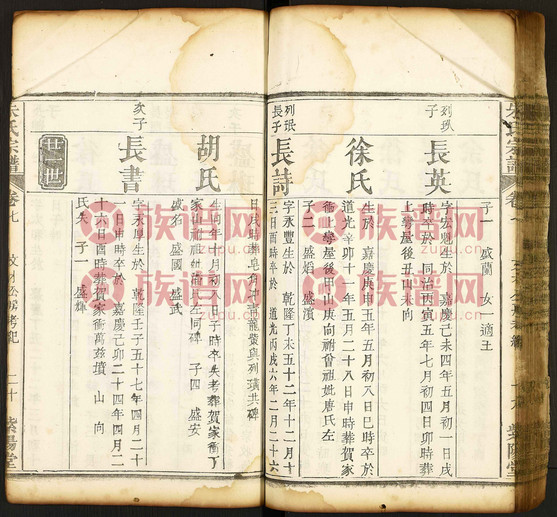 朱氏宗譜
子一 盛蘭 女一適王
列琪子
長英
字宏魁生於 嘉慶己未四年五月初一日戌
時卒於 同治丙寅五年七月初四日卯時葬
上學屋後丑山未向
徐氏
生於 嘉慶庚申五年五月初八日巳時卒於
道光辛卯十一年五月二十八日申時葬賀家
衝上學屋後甲山庚向祔曾祖妣唐氏左
子二 盛 盛濱
列珉長子
長詩
字永豐生於 乾隆丁未五十二年十二月十
三日酉時卒於 道光丙戌六年二月二十六
日戌時葬 龍
與列璜共碑
胡氏
生 年十月初八日子時卒失考葬賀家衝丁
家山祖 左同碑 子四 盛安
盛名 盛國 盛武
次子
長書
字永厚生於 乾隆壬子五十七年四月二十
一日申時卒於 嘉慶己卯二十四年四月二
十六日酉時葬賀家衝萬茲墳 山 向
氏失 子一 盛
廿一世
朱氏宗譜
卷七
二十
紫陽堂
族譜网
zupu.cn